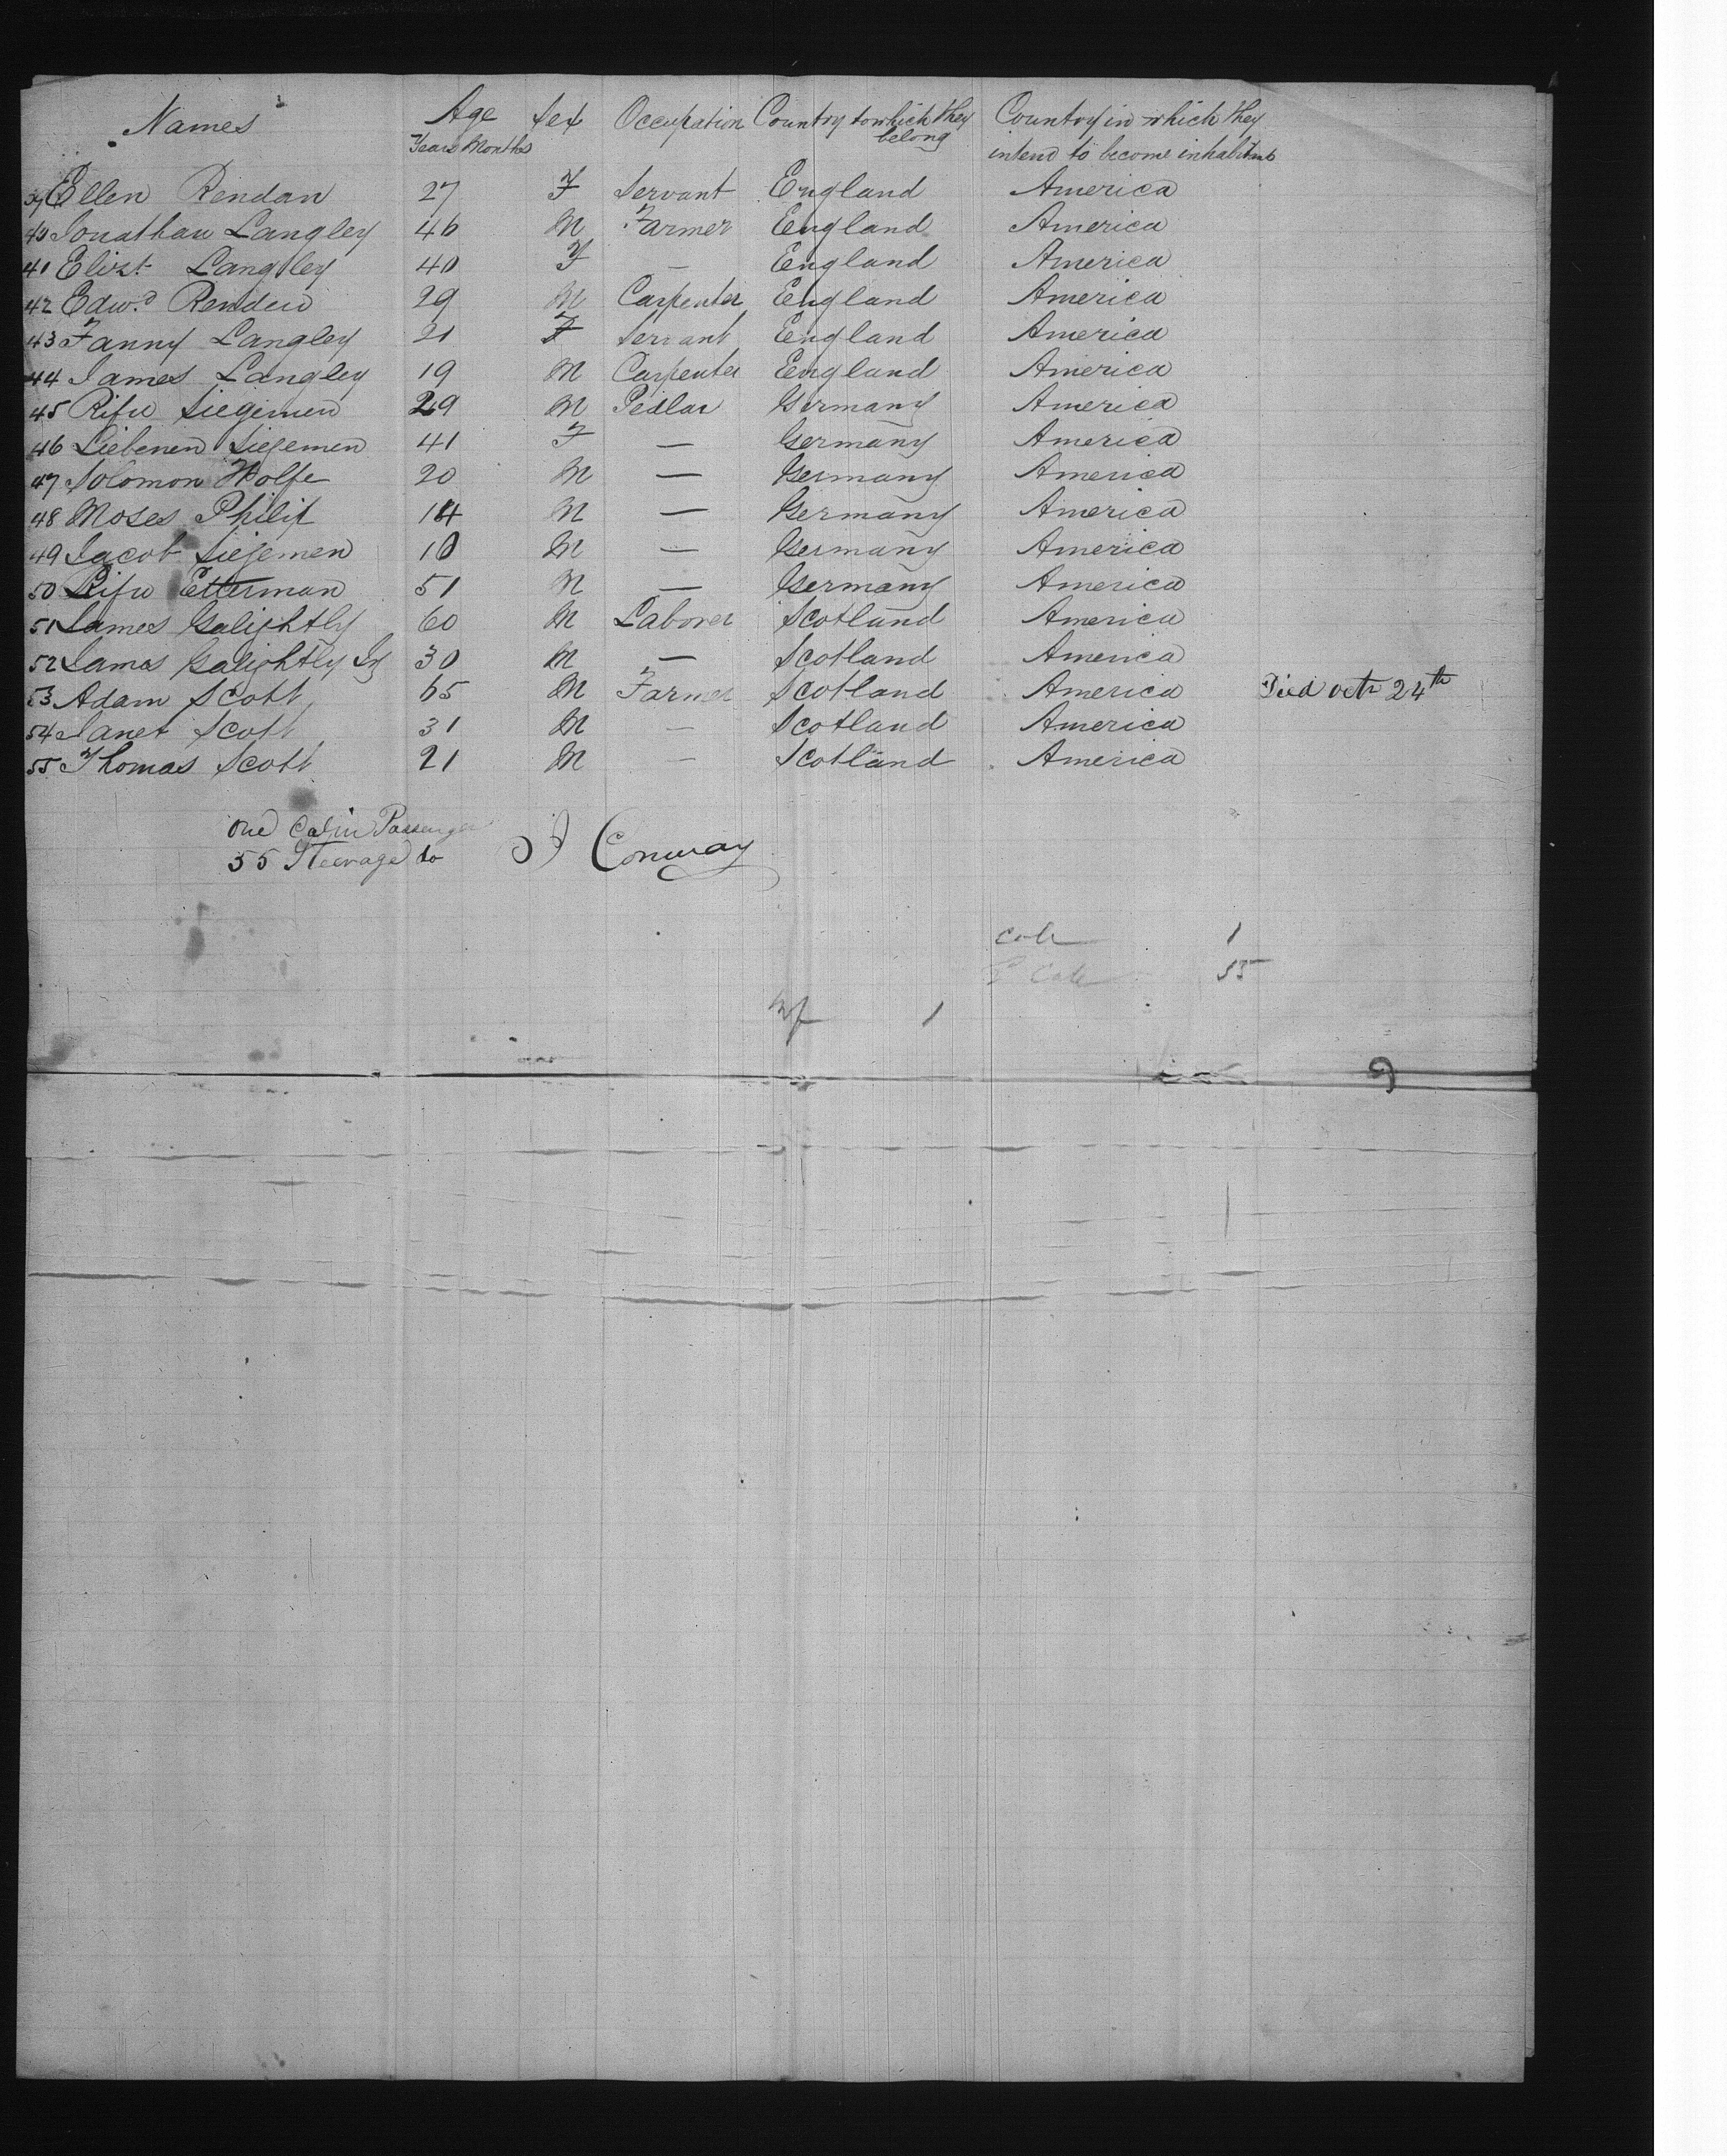 Names Age Sex Occupation Country to which they belong Country in which they
Years Months intend to become inhabitants
39 Ellen Rendan 27 F Servant England America
40 Jonathan Langley 46 M Farmer England America
41 Elizt Langley 40 F — England America
42 Edwd Renden 29 M Carpenter England America
43 Fanny Langley 21 F Servant England America
44 James Langley 19 M Carpenter England America
45 Rifu Siegemen 29 M Pedlar Germany America
46 Liebenen Siegemen 41 F — Germany America
47 Solomon Wolfe 20 M — Germany America
48 Moses Philip 14 M — Germany America
49 Jacob Siegemen 10 M — Germany America
50 Rifu Etterman 51 M — Germany America
51 James Galightly 60 M Laborer Scotland America
52 James Galightly 30 M — Scotland America
53 Adam Scott 65 M Farmer Scotland America Died octr 24th
54 Janet Scott 31 M — Scotland America
55 Thomas Scott 21 M — Scotland America
One Cabin Passenger
55 Steerage do Conway
1
55
1